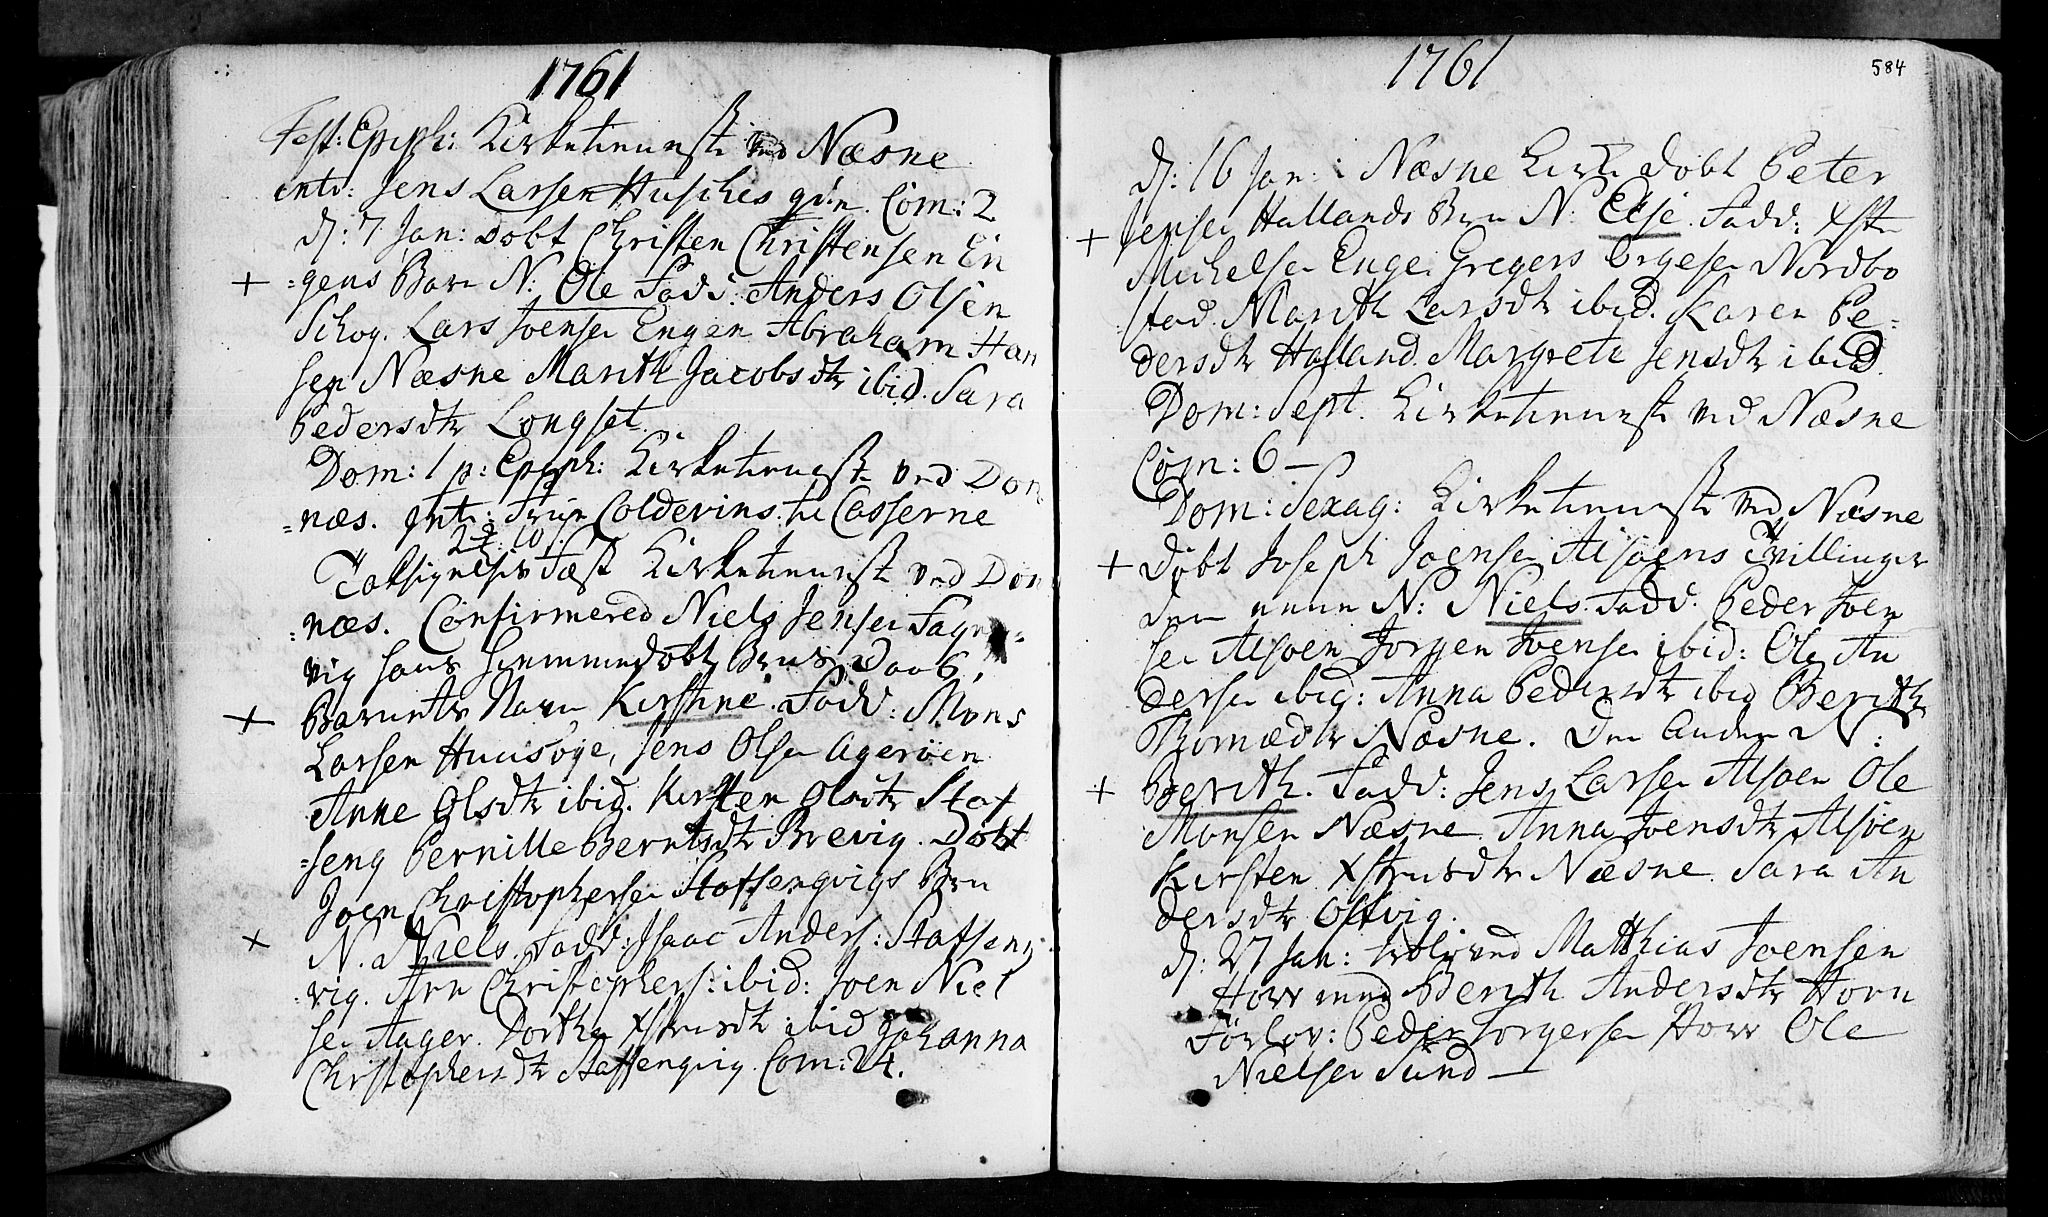 1761
Fest: Epiph: Kirketienneste ved Næsne
intr: Jens Larsen Husbyes qvin. Com: 2
d: 7 Jan: døbt Christen Christensen En
=gens Barn N: Ole Fadd: Anders Olsen
Schog. Lars Joensen Engen Abraham Han
sen Næsne Marith Jacobsdtr ibid. Sara
Pedersdtr Longset.
Dom: 1 p: Epiph: Kirketienneste ved Dön
=næs. Int:
Taksigelses Fæst Kirketienneste ved Dön
=næs. Confirmered Niels Jensen Fagr=
vig hans hiemmedøbte Barns Daab,
Barnets Navn Kirstine. Fadd: Mons
Larsen Huusøye, Jens Olsen Agerøen
Anne Olsdtr ibid. Kirsten Olsdtr Staf
=seng Pernille Berntsdtr Brevig. Døbt
Joen Christophersen Stafsengvigs Barn
N. Niels. Fadd: Isaac Anders: Stafseng
=vig. Arn Christophers: ibid: Joen Niel
sen Aager. Dorthe Xstensdtr ibid Johanna
Christophersdtr Staffengvig. Com: 24.
1761
584
d: 16 Jan: i Næsne Kirke døbt Peter
Jensen Hallands Barn N. Else. Fadd: Xsten
Michelsen Enge. Gregers Ørgesen Nordbo
=stad. Marith Larsdtr ibid. Karen Pe=
dersdtr Halland. Margrete Jensdtr ibid.
Dom: Sept. Kirketienneste ved Næsne
Com: 6 —
Dom: Sexag: Kirketienneste ved Næsne
døbt Joseph Joensen Alsøens Tvillinger
den eene N: Niels. Fadd. Peder Joen
sen Alsøen Jørgen Joensen ibid: Ole An
dersen ibid: Anna Pedersdtr ibid Berith
Thomædtr Næsne. Den Anden N:
Berith. Fadd: Jens Larsen Alsøen Ole
Monsen Næsne. Anna Joensdtr Alsøen
Kirsten Xstensdtr Næsne. Sara An
dersdtr Oftvig.
d: 27 Jan: troloved Matthias Joensen
Horv med Berith Andersdtr Horv
Förlov: Peder Jörgensen Horv Ole
Nielsen Sund —